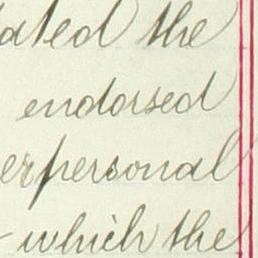 ated the
endorsed
er personal
which the